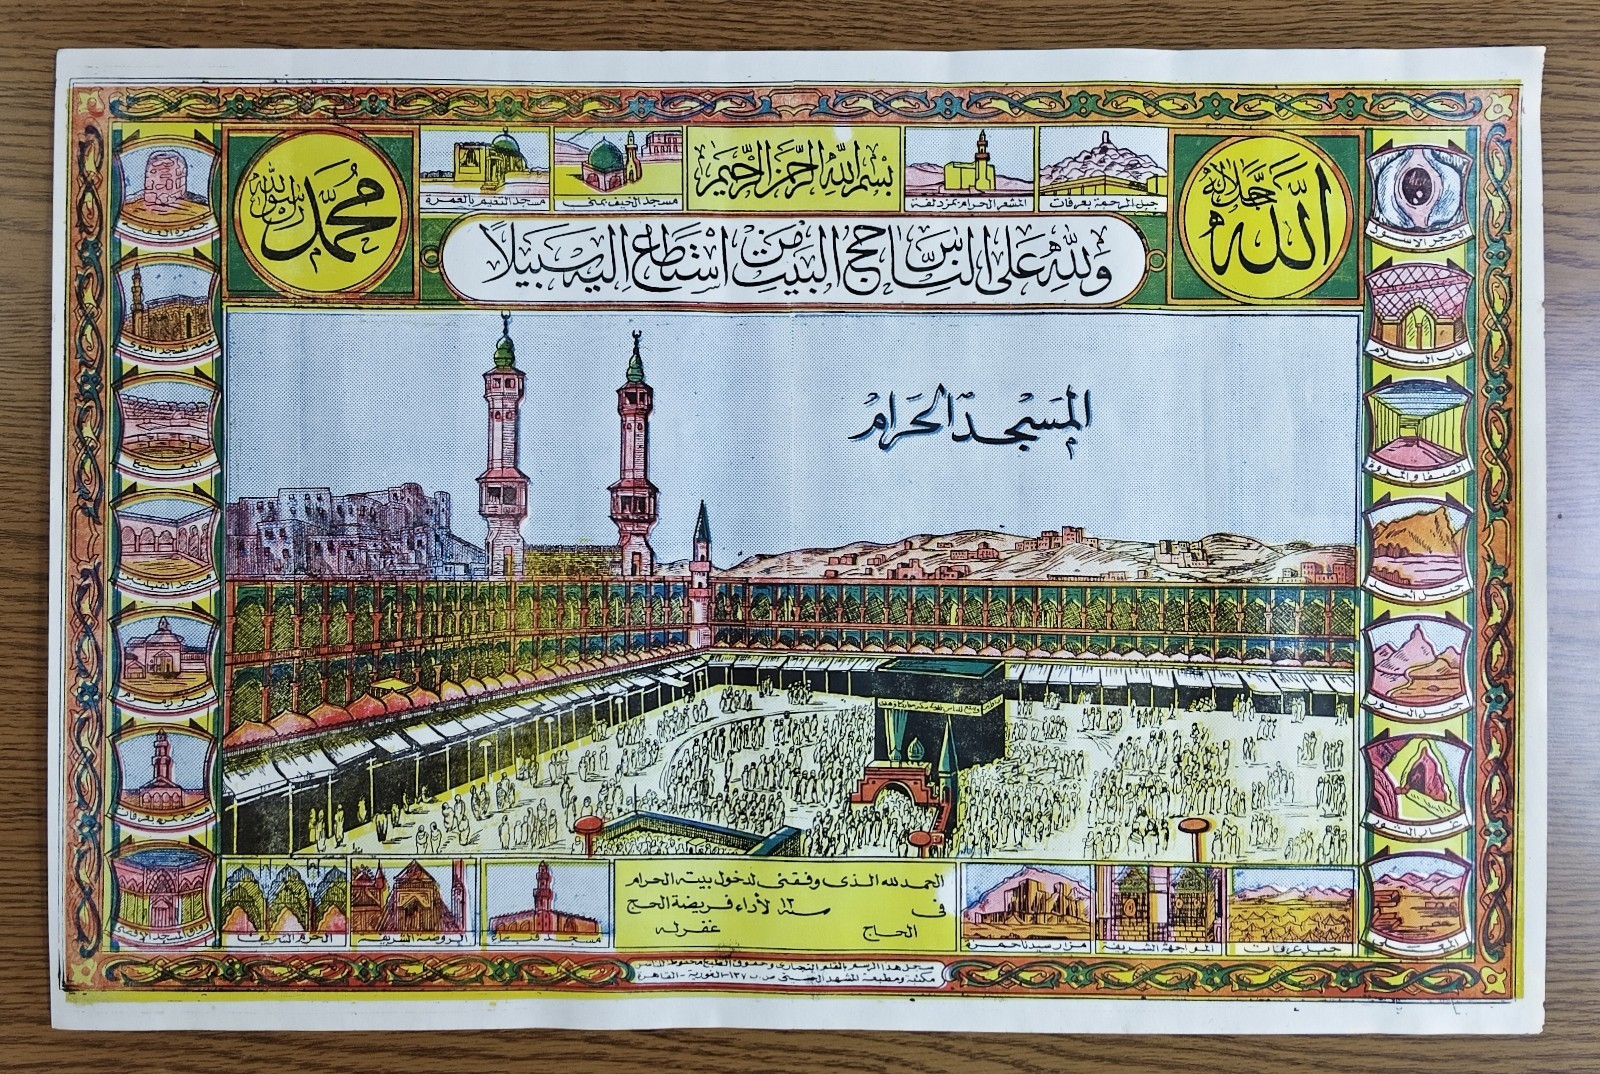 الله جل جلاله
محمد رسول الله
بسم الله الرحمن الرحيم
جبل الرحمة بعرفات
المشعر الحرام بمزدلفة
مسجد الخيف بمنى
مسجد التنعيم بالعمرة
ولله على الناس حج البيت من استطاع إليه سبيلا
المسجد الحرام
الحجر الاسود
باب السلام
الصفا والمروة
جبل أحد
جبل النور
غار الثور
البقيع
مسجد القبلتين
جبل عرفات
المواجهة الشريفة
مزار سيدنا حمزة
الحمد لله الذى وفقنى لدخول بيته الحرام
فى سنة ١٣ لأداء فريضة الحج
الحاج غفر له
مسجد قباء
الروضة الشريفة
الحرم الشريف
سجل هذا الرسم بالقلم التجارى وحقوق الطبع محفوظة للناشر
مكتبة ومطبعة المشهد الحسينى ص.ب ١٣٧ - الغورية - القاهرة